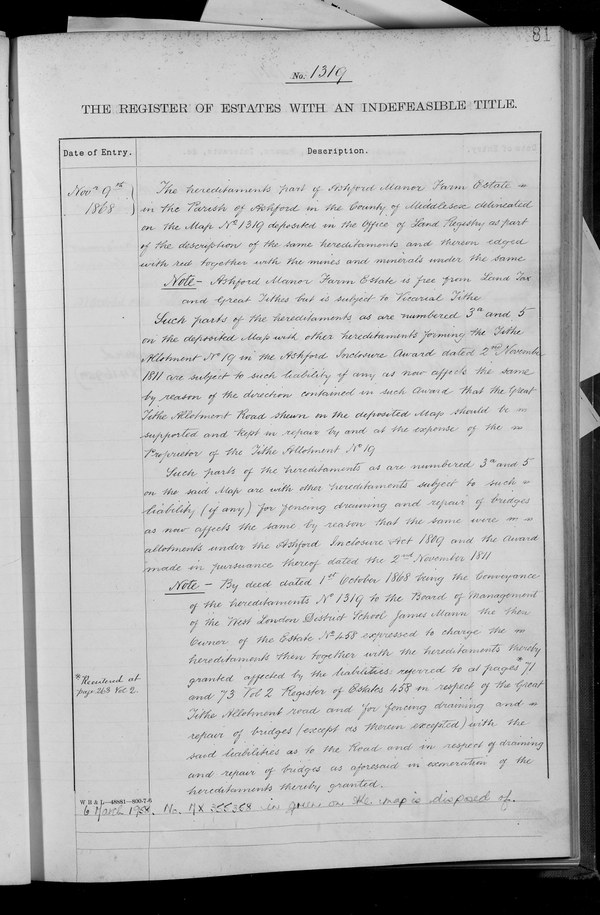 81
No. 1319
THE REGISTER OF ESTATES WITH AN INDEFEASIBLE TITLE.
Date of Entry.
Description.
Novr 9th
1868
The hereditaments part of Ashford Manor Farm Estate
in the Parish of Ashford in the County of Middlesex delineated
on the Map No 1319 deposited in the Office of Land Registry as part
of the description of the same hereditaments and thereon edged
with red together with the mines and minerals under the same
Note - Ashford Manor Farm Estate is free from Land Tax
and Great Tithes but is subject to Vicarial Tithe
Such parts of the hereditaments as are numbered 3a and 5
on the deposited Map with other hereditaments forming the Tithe
Allotment No 19 in the Ashford Inclosure Award dated 2nd November
1811 are subject to such liability if any as now affects the same
by reason of the direction contained in such Award that the Great
Tithe Allotment Road shewn on the deposited Map should be
supported and kept in repair by and at the expense of the
Proprietor of the Tithe Allotment No 19
Such parts of the hereditaments as are numbered 3a and 5
on the said Map are with other hereditaments subject to such
liability (if any) for fencing draining and repair of bridges
as now affects the same by reason that the same were
allotments under the Ashford Inclosure Act 1809 and the Award
made in pursuance thereof dated the 2nd November 1811
Note - By deed dated 1st October 1868 being the Conveyance
of the hereditaments No 1319 to the Board of Management
of the West London District School James Mann the then
Owner of the Estate No 458 expressed to charge the
hereditaments then together with the hereditaments thereby
granted affected by the liabilities referred to at pages * 71
and 73 Vol 2 Register of Estates 458 in respect of the Great
Tithe Allotment road and for fencing draining and
repair of bridges (except as therein excepted) with the
said liabilities as to the Road and in respect of draining
and repair of bridges as aforesaid in exoneration of the
hereditaments thereby granted.
* Reentered at
page 263 Vol 2.
W B & L
6 March 19 No. MX 355358 in green on the map is disposed of.